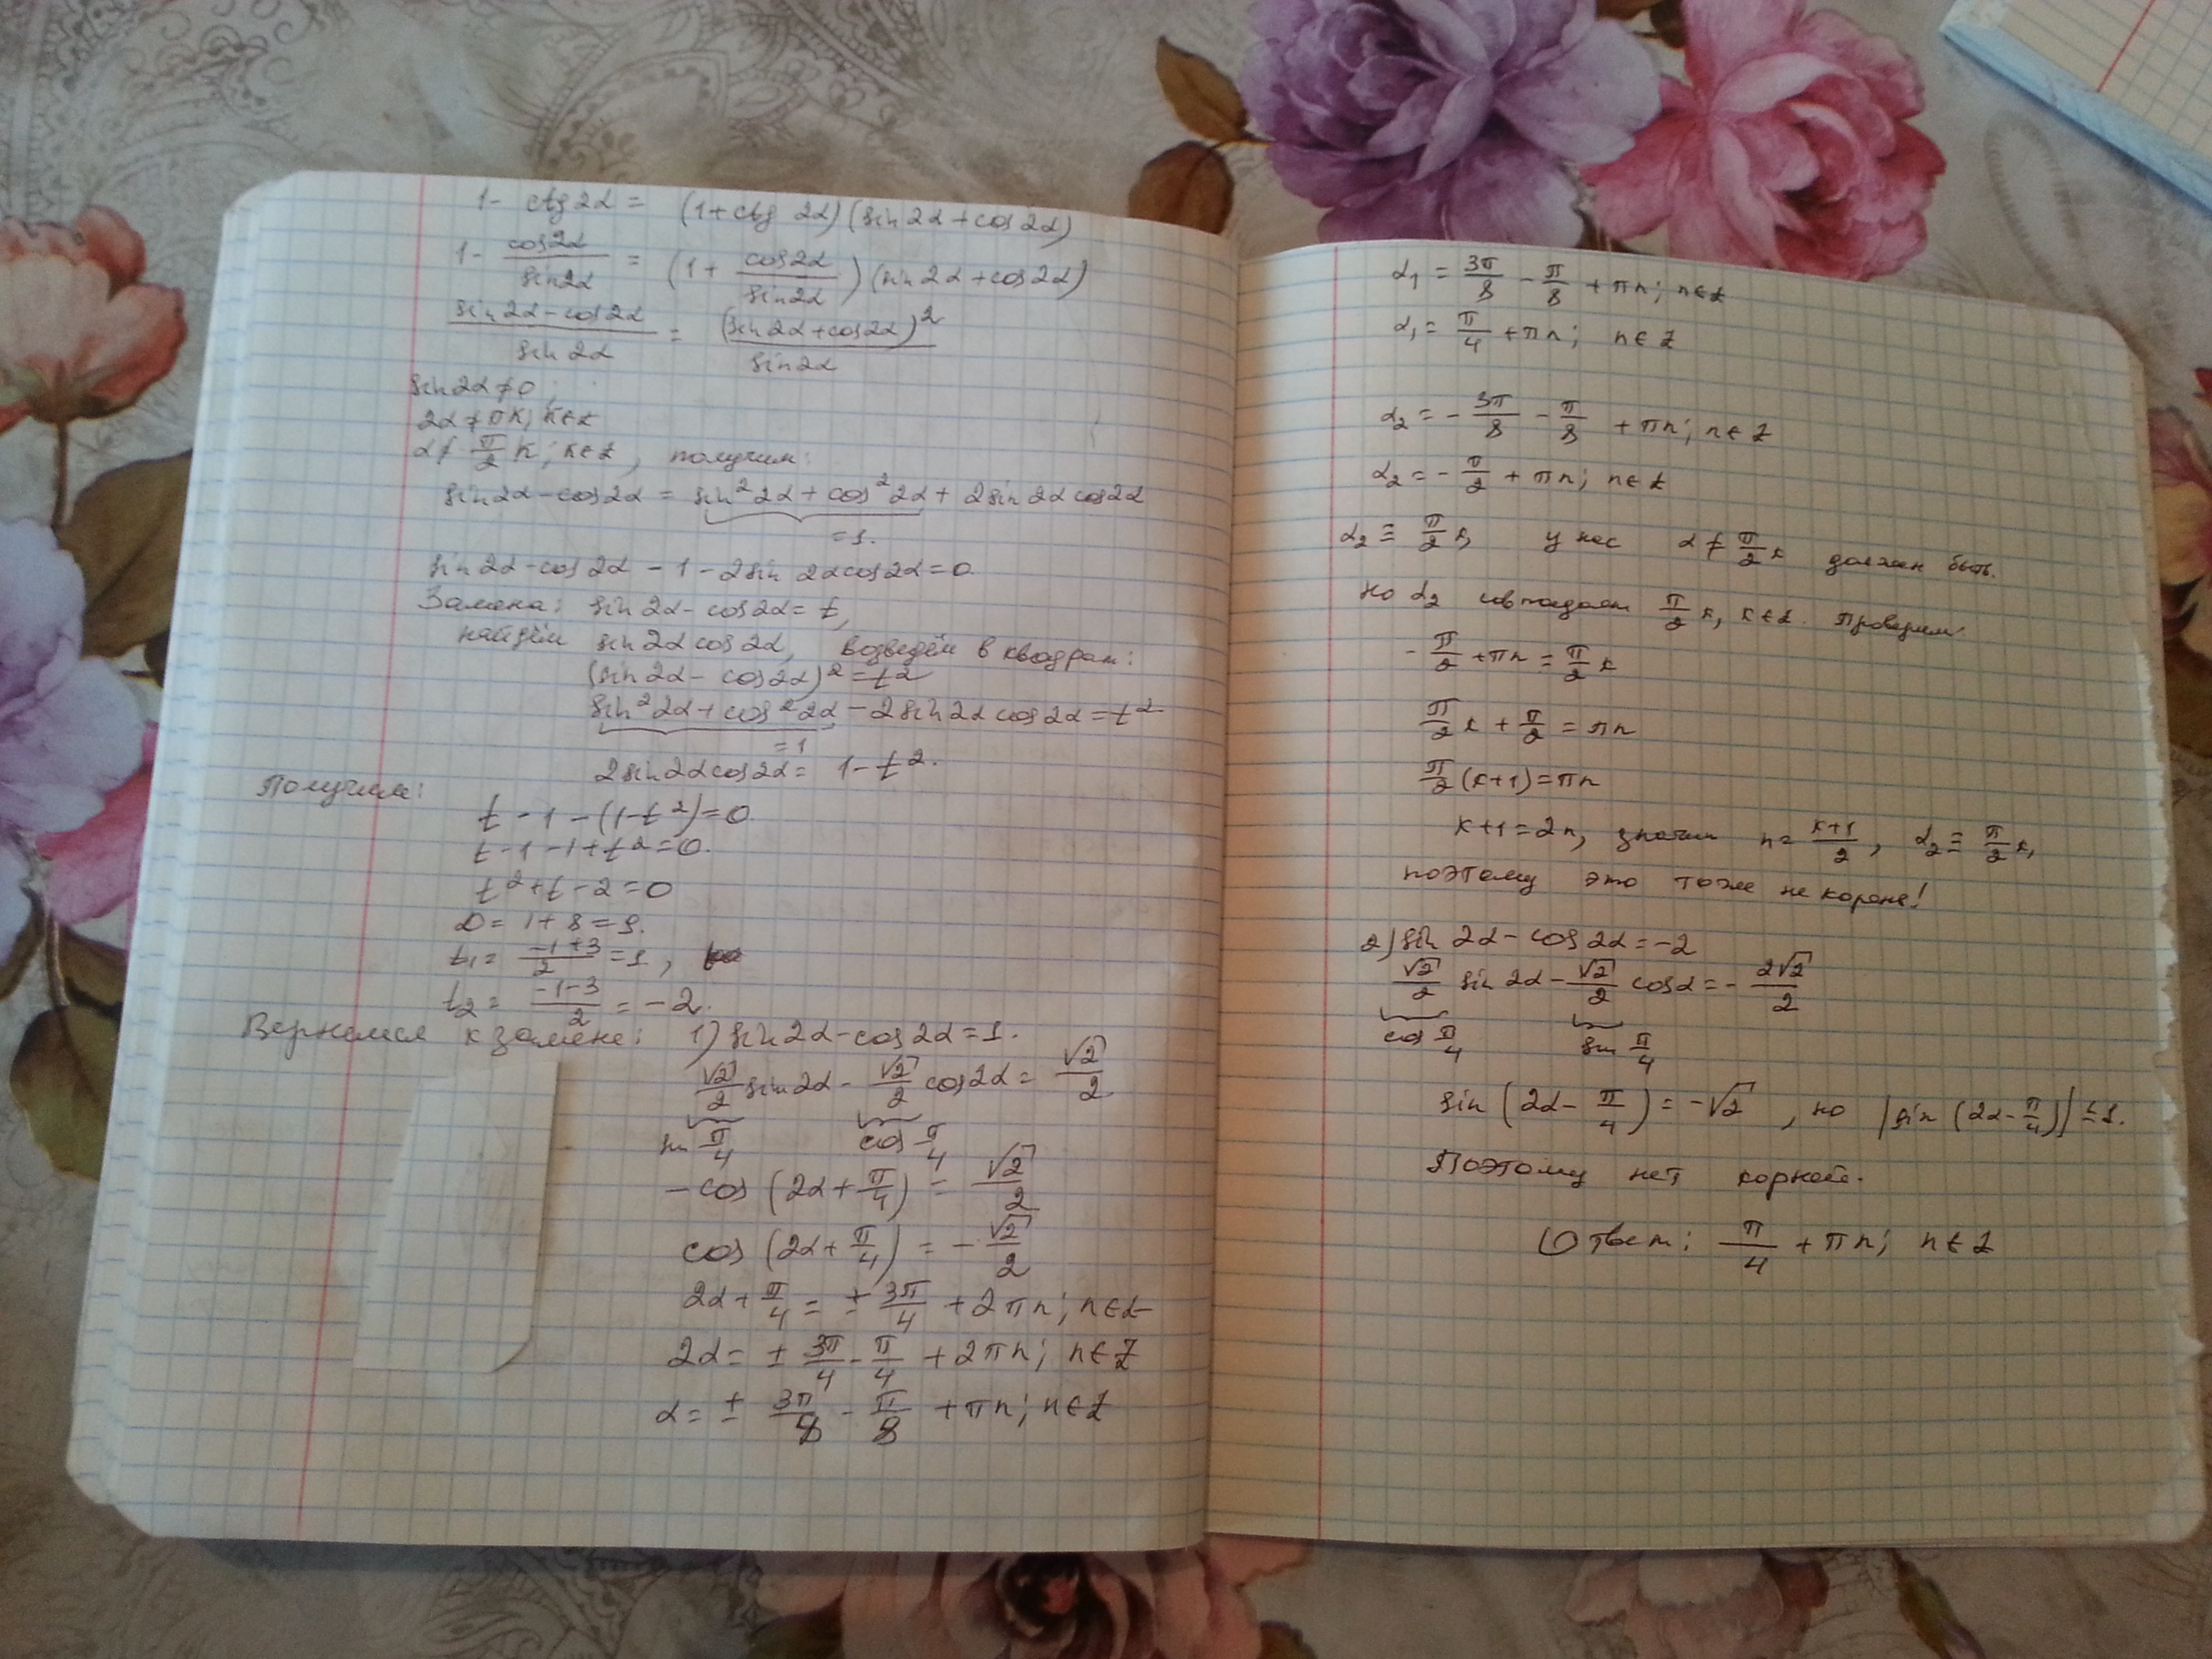 1 - ctg 2α = (1 + ctg 2α)(sin 2α + cos 2α)
1 - cos2α/sin2α = (1 + cos2α/sin2α)(sin 2α + cos 2α)
(sin 2α - cos 2α)/sin 2α = (sin 2α + cos 2α)²/sin 2α
sin 2α ≠ 0;
2α ≠ πk; k∈Z
α ≠ π/2 k; k∈Z, получим:
sin 2α - cos 2α = sin² 2α + cos² 2α + 2 sin 2α cos 2α
= 1.
sin 2α - cos 2α - 1 - 2 sin 2α cos 2α = 0.
Замена: sin 2α - cos 2α = t,
найдём sin 2α cos 2α, возведём в квадрат:
(sin 2α - cos 2α)² = t²
sin² 2α + cos² 2α - 2 sin 2α cos 2α = t²
= 1
2 sin 2α cos 2α = 1 - t².
Получим:
t - 1 - (1 - t²) = 0
t - 1 - 1 + t² = 0.
t² + t - 2 = 0
D = 1 + 8 = 9.
t₁ = (-1+3)/2 = 1,
t₂ = (-1-3)/2 = -2.
Вернемся к замене: 1) sin 2α - cos 2α = 1.
√2/2 sin 2α - √2/2 cos 2α = √2/2
sin π/4 cos π/4
- cos (2α + π/4) = √2/2
cos (2α + π/4) = - √2/2
2α + π/4 = ± 3π/4 + 2πn; n∈Z
2α = ± 3π/4 - π/4 + 2πn; n∈Z
α = ± 3π/8 - π/8 + πn; n∈Z
α₁ = 3π/8 - π/8 + πn; n∈Z
α₁ = π/4 + πn; n∈Z
α₂ = - 3π/8 - π/8 + πn; n∈Z
α₂ = - π/2 + πn; n∈Z
α₂ ≡ π/2 k, у нас α ≠ π/2 k должен быть.
Но α₂ совпадает π/2 k, k∈Z. Проверим
- π/2 + πn = π/2 k
π/2 k + π/2 = πn
π/2 (k+1) = πn
k+1 = 2n, значит n = (k+1)/2, α₂ ≡ π/2 k,
поэтому это тоже не корень!
2) sin 2α - cos 2α = -2
√2/2 sin 2α - √2/2 cos α = - 2√2/2
cos π/4 sin π/4
sin (2α - π/4) = -√2, но |sin (2α - π/4)| ≤ 1.
Поэтому нет корней.
Ответ: π/4 + πn; n∈Z